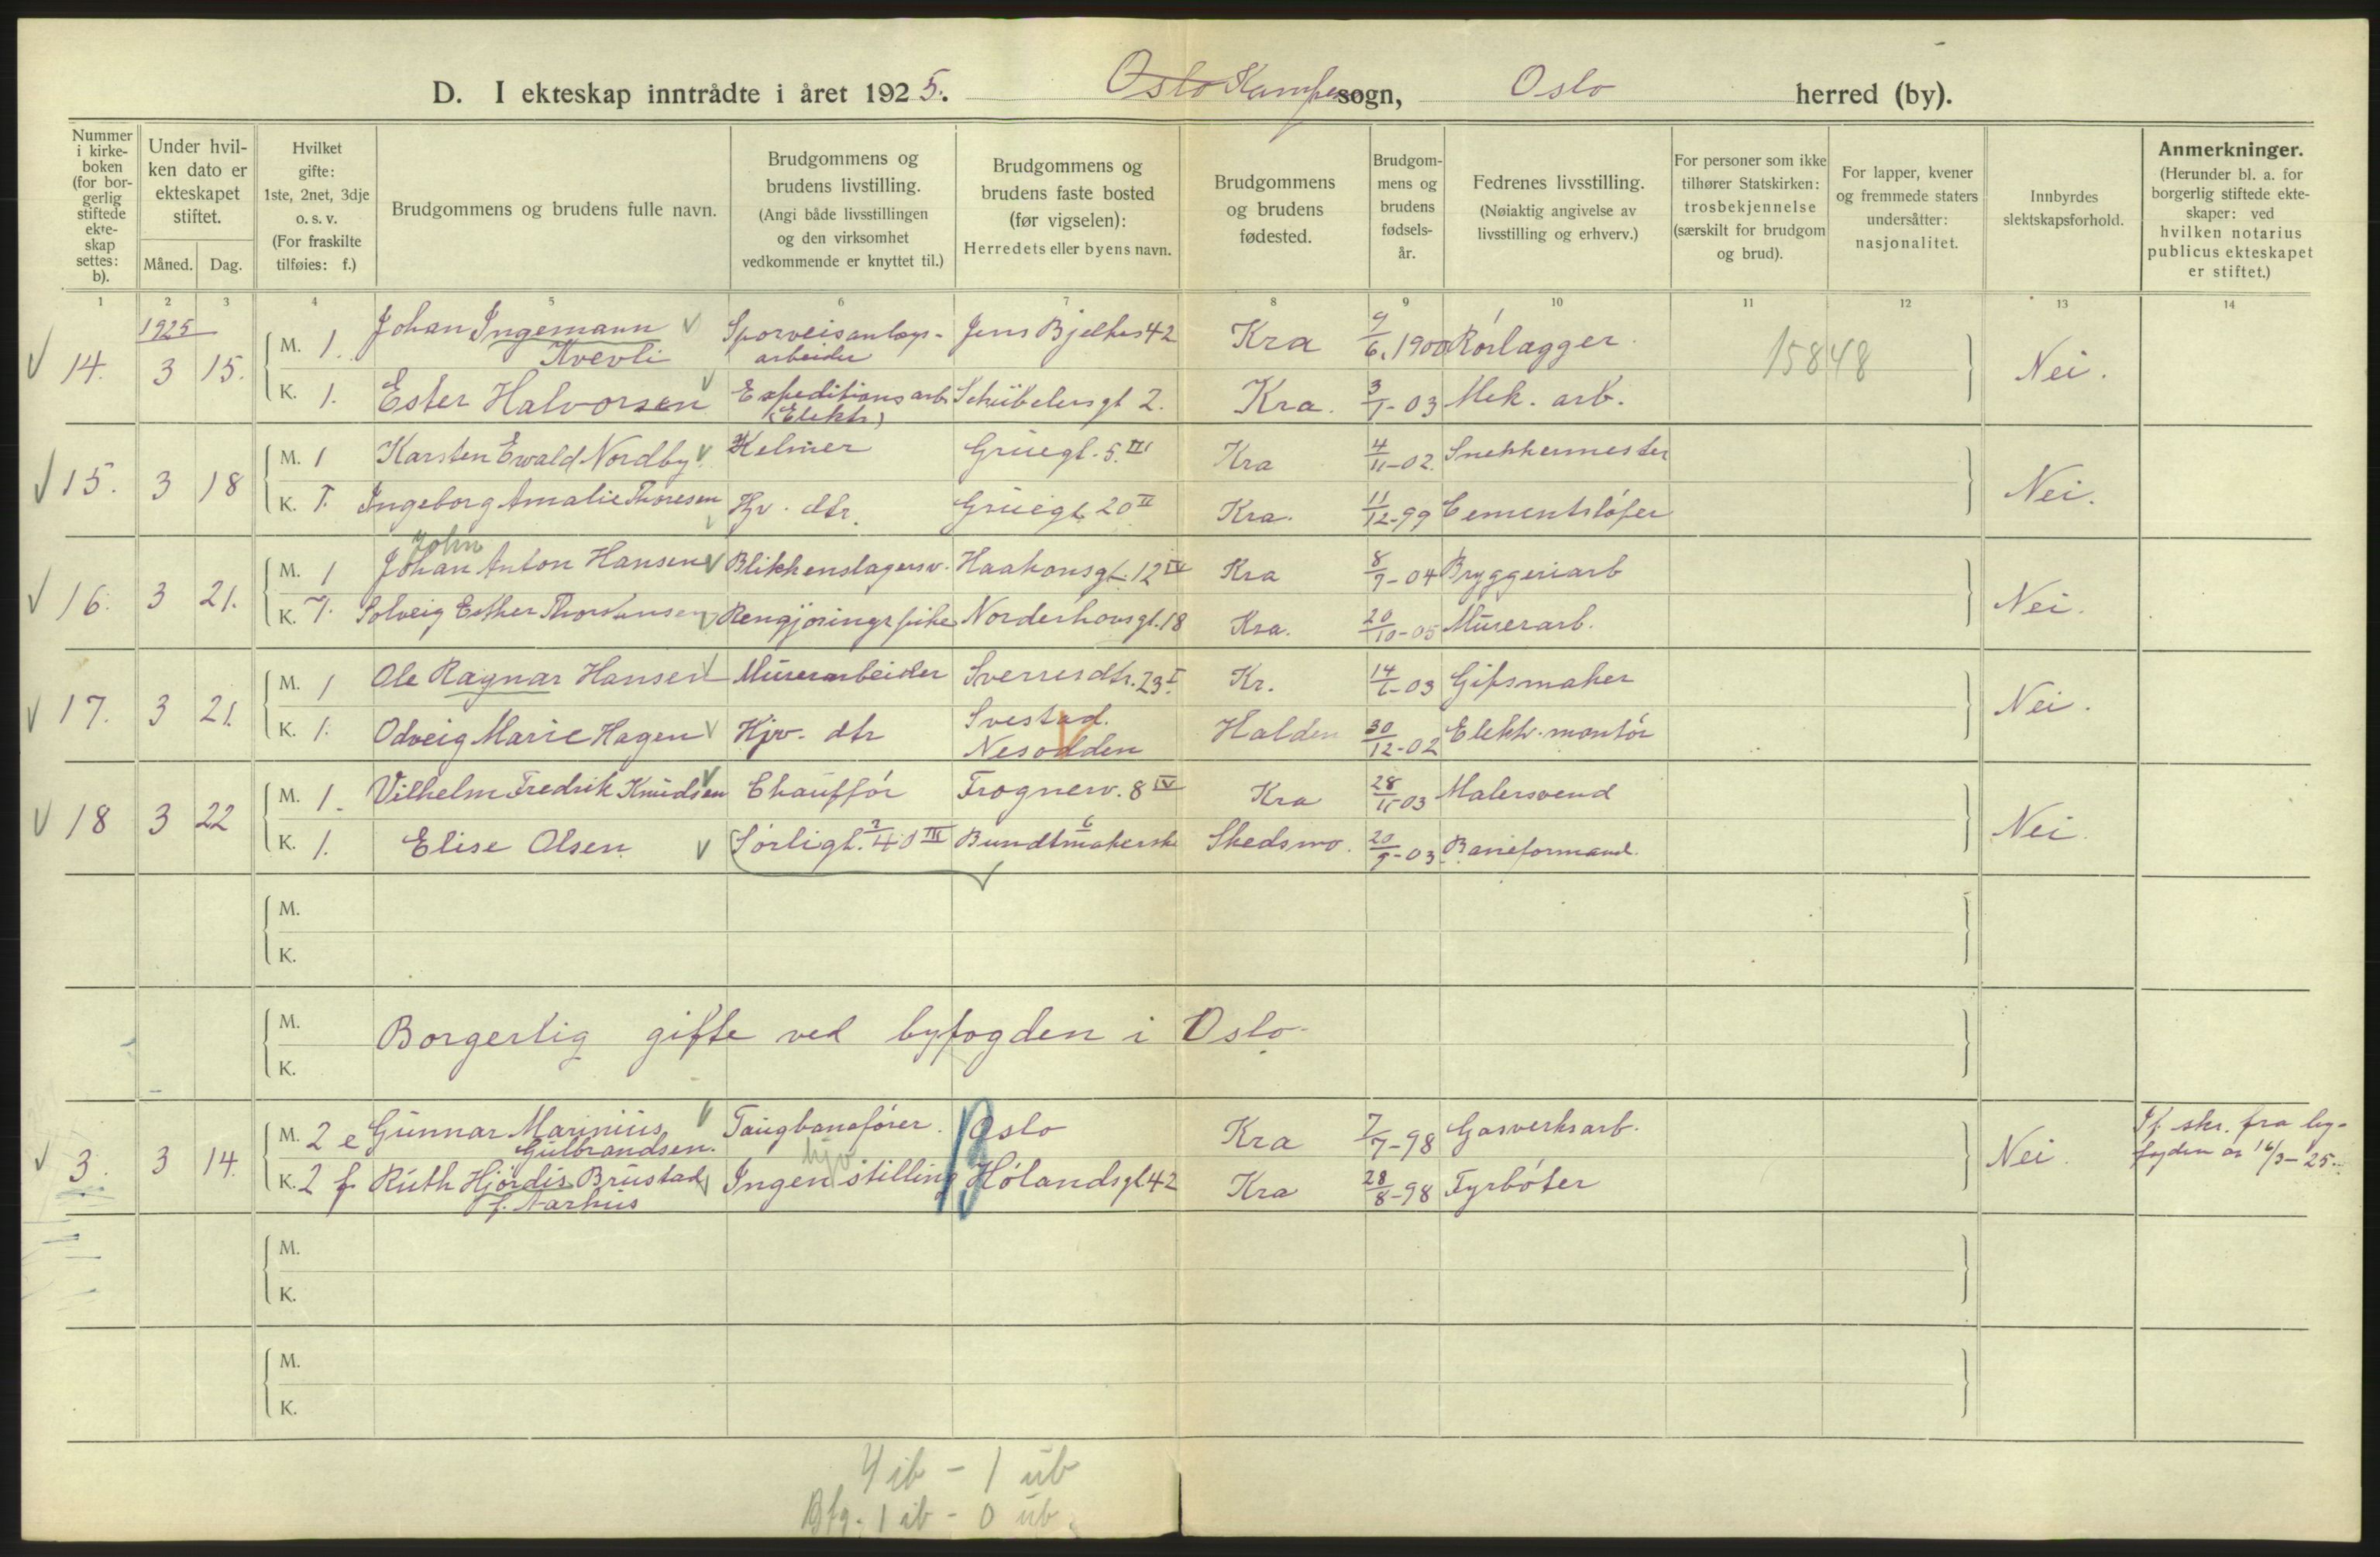 D. I ekteskap inntrådte i året 1925. Oslo Kampen sogn, Oslo herred (by).
Nummer i kirkeboken (for borgerlig stiftede ekteskap settes: b).
Under hvilken dato er ekteskapet stiftet.
Måned. Dag.
Hvilket gifte: 1ste, 2net, 3dje o. s. v. (For fraskilte tilføies: f.)
Brudgommens og brudens fulle navn.
Brudgommens og brudens livstilling. (Angi både livsstillingen og den virksomhet vedkommende er knyttet til.)
Brudgommens og brudens faste bosted (før vigselen): Herredets eller byens navn.
Brudgommens og brudens fødested.
Brudgommens og brudens fødselsår.
Fedrenes livsstilling. (Nøiaktig angivelse av livsstilling og erhverv.)
For personer som ikke tilhører Statskirken: trosbekjennelse (særskilt for brudgom og brud).
For lapper, kvener og fremmede staters undersåtter: nasjonalitet.
Innbyrdes slektskapsforhold.
Anmerkninger. (Herunder bl. a. for borgerlig stiftede ekteskaper: ved hvilken notarius publicus ekteskapet er stiftet.)
1 2 3 4 5 6 7 8 9 10 11 12 13 14
1925
14. 3 15. M. 1. Johan Ingemann Kvevli Sporveisanlægs-arbeider Jens Bjelkes 42 Kra 9/6. 1900 Rørlægger. 15848 Nei.
K. 1. Ester Halvorsen Expeditionsarb. (Elektr) Schübelersgt 2. Kra. 3/1-03 Mek. arb.
15. 3 18 M. 1 Karsten Ewald Nordby Kelner Grüegt. 5. III Kra 4/11-02. Snekkermester Nei.
K. 1. Ingeborg Amalie Thoresen Hjv. dtr. Grüegt 20 II Kra. 11/12-99 Cementstøper
John
16. 3 21. M. 1 Johan Anton Hansen Blikkenslagersv. Haakonsgt. 12 IV Kra 8/9-04 Bryggeriarb Nei.
K. 1. Solveig Esther Thorstensen Rengjøringspike Norderhovsgt. 18 Kra. 20/10-05 Murerarb.
17. 3 21. M. 1 Ole Ragnar Hansen Murerarbeider Sverresdtr. 23 I. Kr. 14/6-03 Gipsmaker Nei.
K. 1. Odveig Marie Hagen Hjv. dtr Svestad. Nesodden Halden 30/12-02 Elektr. montør
18 3 22 M. 1. Vilhelm Fredrik Knudsen Chauffør Frognerv. 8 IV Kra 28/11-03 Malersvend Nei.
K. 1. Elise Olsen Sørligt. 40 III Bundtmakerske Skedsmo. 20/9-03 Baneformand.
M.
K.
M. Borgerlig gifte ved byfogden i Oslo.
K.
3. 3 14. M. 2 e Gunnar Marinius Gulbrandsen. Taugbanefører. Oslo Kra 7/7-98 Gasverksarb. Nei. If. skr. fra byfogden av 16/3-25.
K. 2 f Ruth Hjördis Brustad f. Aarhus Ingen stilling hjv Hølandsgt 42 Kra 28/8-98 Fyrbøter
M.
K.
M.
K.
4 ib - 1 ub
Bfg. 1 ib - 0 ub.